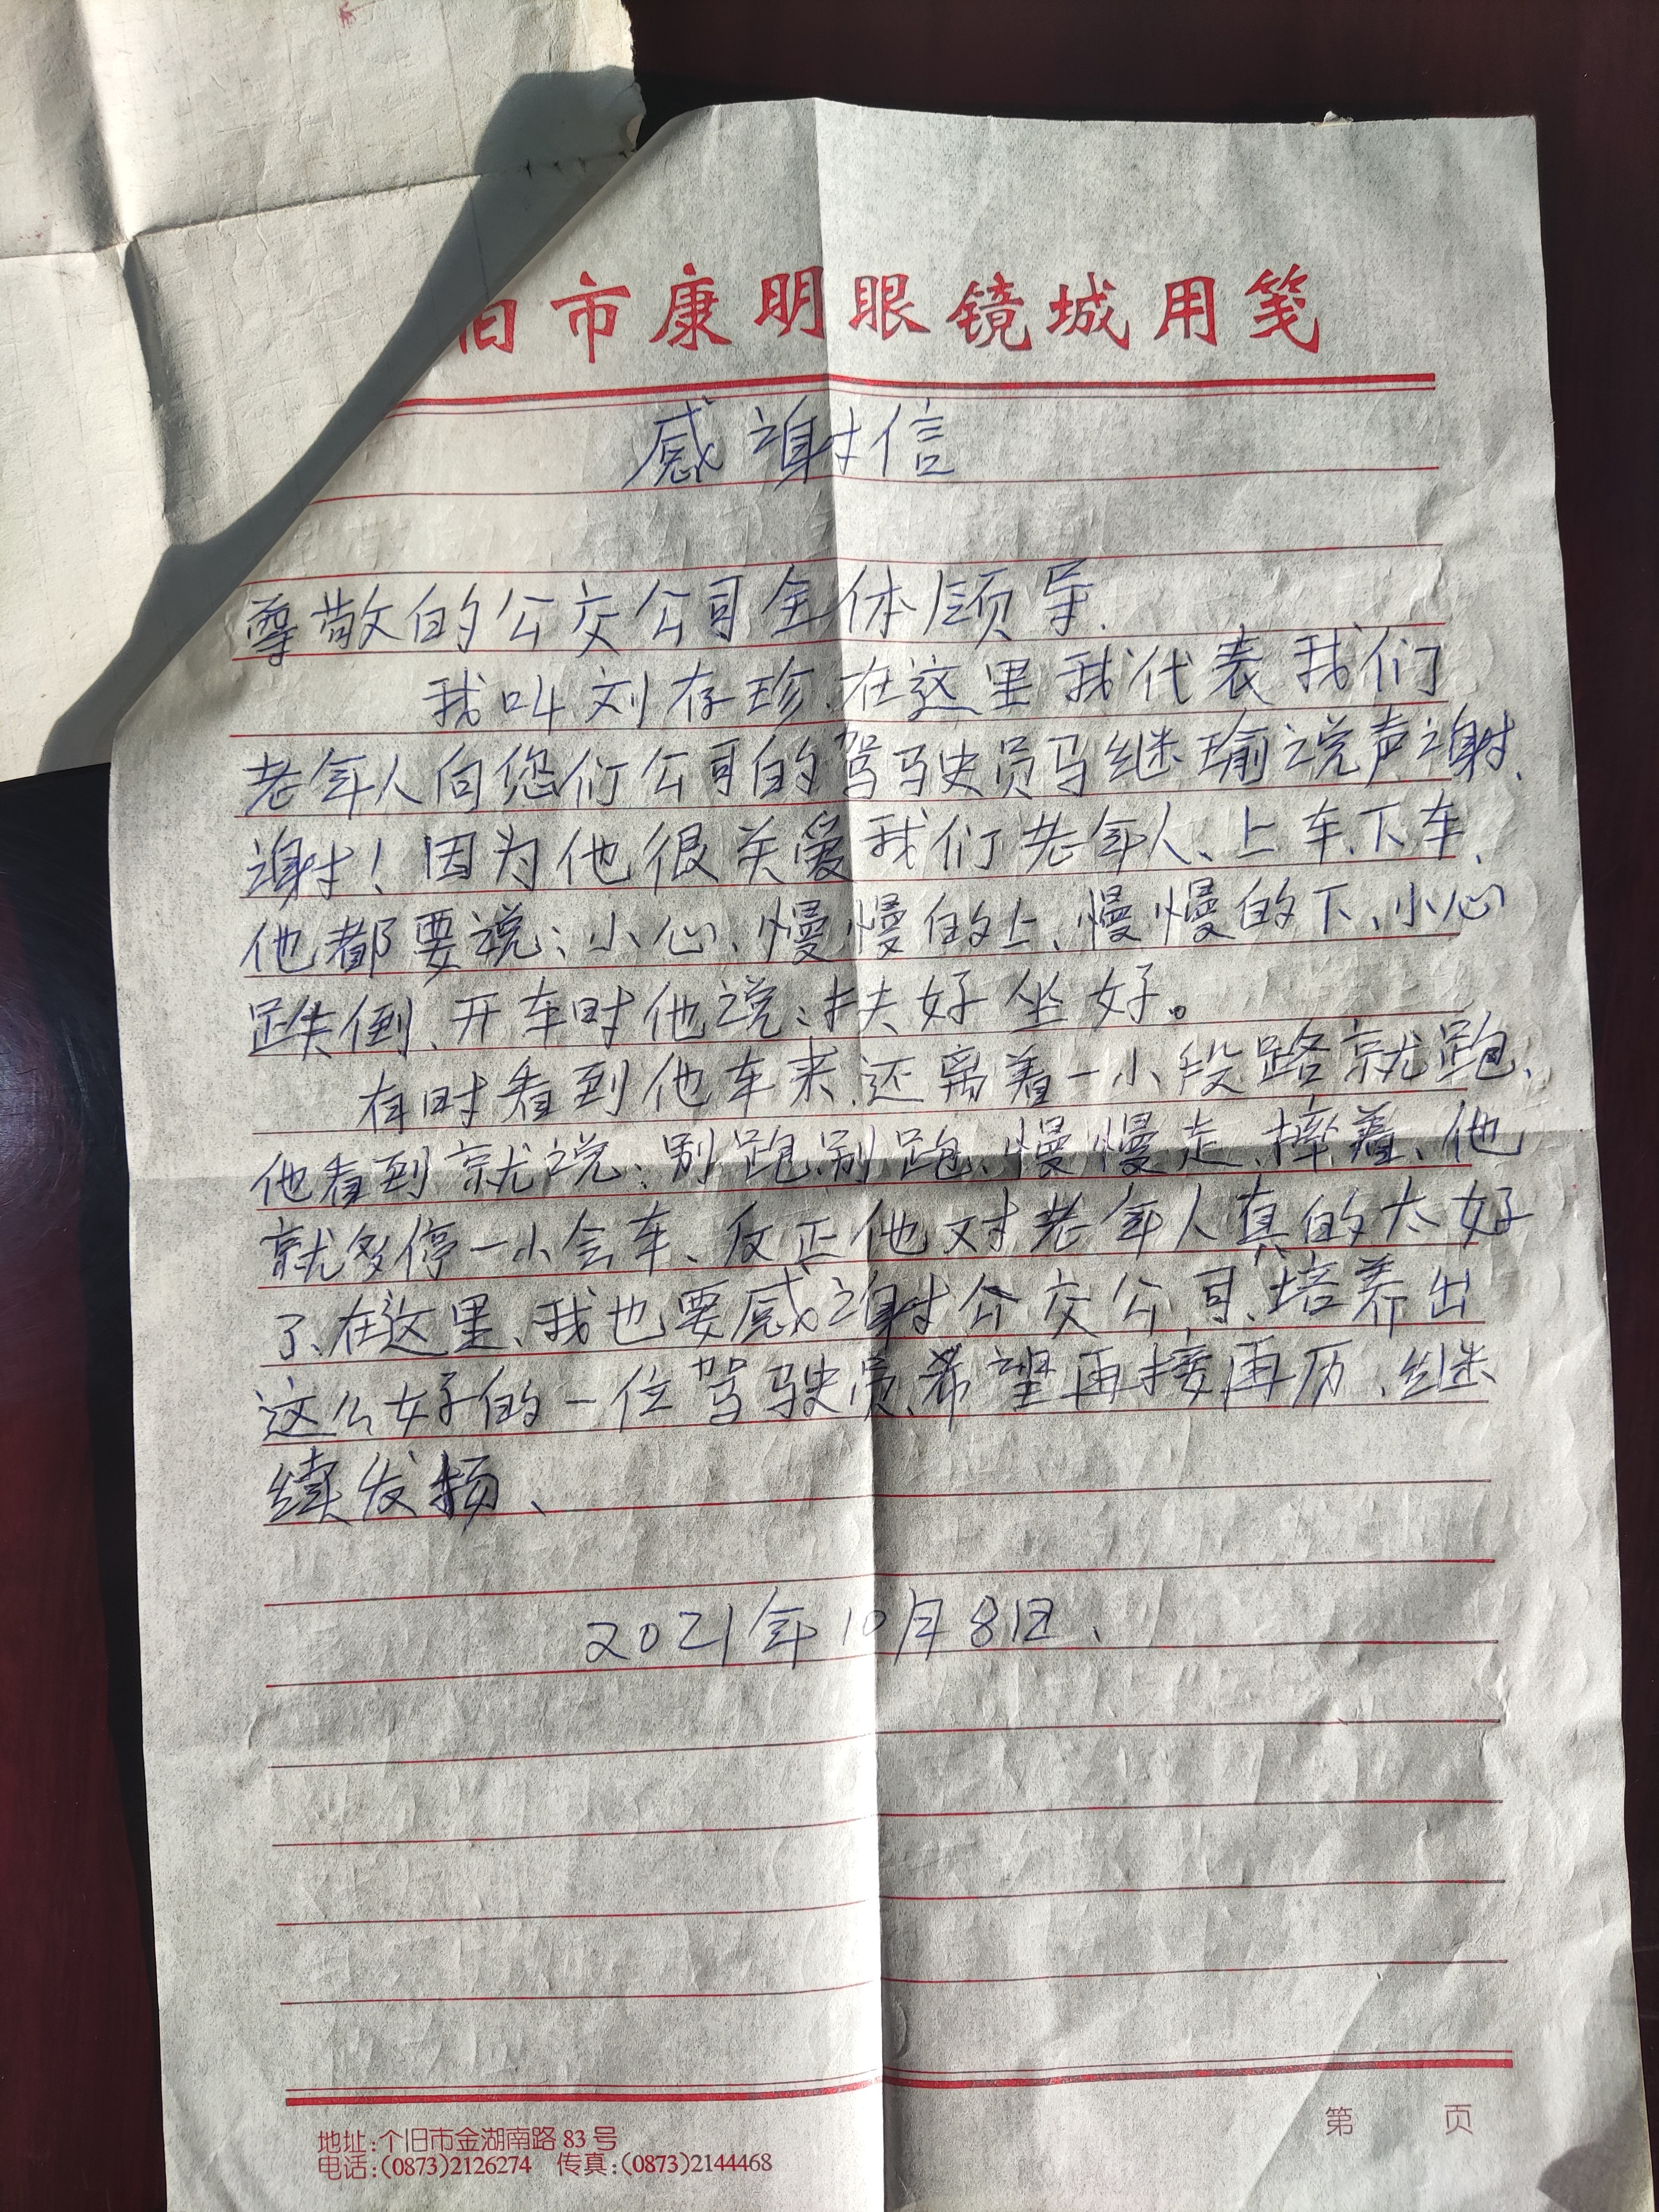 旧市康明眼镜城用笺
感谢信
尊敬的公交公司全体领导.
我叫刘存珍.在这里我代表我们
老年人向您们公司的驾驶员马继瑜说声谢、
谢！因为他很关爱我们老年人、上车、下车、
他都要说：小心、慢慢的上、慢慢的下、小心
跌倒、开车时他说：扶好坐好。
有时看到他车来、还离着一小段路就跑、
他看到就说：别跑别跑、慢慢走、摔着、他
就多停一小会车、反正他对老年人真的太好
了、在这里、我也要感谢公交公司、培养出
这么好的一位驾驶员、希望再接再历、继
续发扬、
2021年10月8日、
第 页
地址：个旧市金湖南路83号
电话：(0873)2126274 传真：(0873)2144468